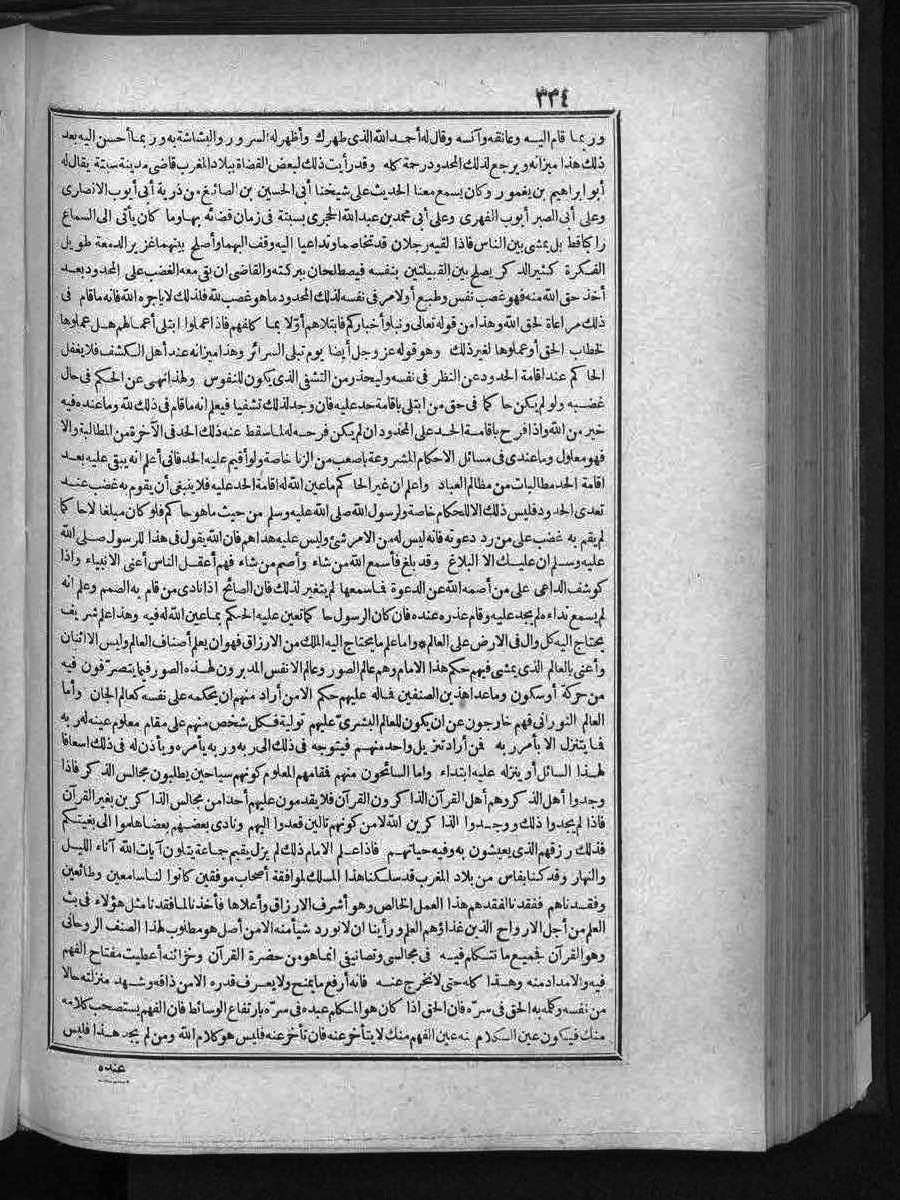 ٣٣٤
وربما قام اليه وعانقه وآنسه وقال له أحمد الله الذى طهرك وأظهر له السرور والبشاشة به وربما أحسن اليه بعد
ذلك هذا ميزانه ويرجع لذلك المحدود رحمة كله وقد رأيت ذلك لبعض القضاة ببلاد المغرب قاضى مدينة سبتة يقال له
أبو ابراهيم بن يغمور وكان يسمع معنا الحديث على شيخنا أبى الحسين بن الصائغ من ذرية أبى أيوب الانصارى
وعلى أبى الصبر أيوب الفهرى وعلى أبى محمد بن عبد الله الحجرى بسبتة فى زمان قضائه بها وما كان يأتى الى السماع
راكا قط بل يمشى بين الناس فاذا لقيه رجلان قد تخاصما وتداعيا اليه وقف اليهما وأصلح بينهما غزير الدمعة طويل
الفكرة كثير الذكر يصلح بين القبيلتين بنفسه فيصطلحان ببركته والقاضى ان بقى معه الغضب على المحدود بعد
أخذ حق الله منه فهو غضب نفس وطبع أو لامر فى نفسه لذلك المحدود ما هو غضب لله فلذلك لا ياجره الله فانه ما قام فى
ذلك مراعاة لحق الله وهذا من قوله تعالى ونبلو أخباركم فابتلاهم أوّلا بما كلفهم فاذا عملوا ابتلى أعمالهم هل عملوها
لخطاب الحق أو عملوها لغير ذلك وهو قوله عز وجل أيضا يوم تبلى السرائر وهذا ميزانه عند أهل الكشف فلا يغفل
الحاكم عند اقامة الحدود عن النظر فى نفسه وليحذر من التشفى الذى يكون للنفوس ولهذا نهى عن الحكم فى حال
غضبه ولو لم يكن حاكما فى حق من ابتلى باقامة حد عليه فان وجد لذلك تشفيا فيعلم انه ما قام فى ذلك لله وما عنده فيه
خير من الله واذا فرح باقامة الحد على المحدود ان لم يكن فرحه له لما سقط عنه ذلك الحد فى الآخرة من المطالبة والا
فهو معلول وما عندى فى مسائل الاحكام المشروعة باصعب من الزنا خاصة ولو أقيم عليه الحد فانى أعلم انه يبقى عليه بعد
اقامة الحد مطالبات من مظالم العباد واعلم ان غير الحاكم ما عين الله له اقامة الحد عليه فلا ينبغى أن يقوم به غضب عند
تعدى الحدود فليس ذلك الا للحكام خاصة ولرسول الله صلى الله عليه وسلم من حيث ما هو حاكم فلو كان مبلغا لا حاكما
لم يقم به غضب على من رد دعوته فانه ليس له من الامر شئ وليس عليه هداهم فان الله يقول فى هذا للرسول صلى الله
عليه وسلم ان عليك الا البلاغ وقد بلغ فأسمع الله من شاء وأصم من شاء فهم أعقل الناس أعنى الانبياء واذا
كوشف الداعى على من أصمه الله عن الدعوة فما سمعها لم يتغير لذلك فان الصائح اذا نادى من قام به الصمم وعلم انه
لم يسمع نداءه لم يجد عليه وقام عذره عنده فان كان الرسول حاكما تعين عليه الحكم بما عين الله له فيه وهذا علم شريف
يحتاج اليه كل وال فى الارض على العالم * واما علم ما يحتاج اليه الملك من الارزاق فهو ان يعلم أصناف العالم وليس الا اثنان
وأعنى بالعالم الذى يمشى فيهم حكم هذا الامام وهم عالم الصور وعالم الانفس المدبرون لهذه الصور فيما يتصرّفون فيه
من حركة أو سكون وما عدا هذين الصنفين فما له عليهم حكم الا من أراد منهم ان يحكمه على نفسه كعالم الجان وأما
العالم النورانى فهم خارجون عن ان يكون للعالم البشرىّ عليهم تولية فكل شخص منهم على مقام معلوم عينه له ربه
فما يتنزل الا بأمر ربه فمن أراد تنزيل واحد منهم فيتوجه فى ذلك الى ربه وربه يأمره ويأذن له فى ذلك اسعافا
لهذا السائل أو ينزله عليه ابتداء واما السائحون منهم فمقامهم المعلوم كونهم سياحين يطلبون مجالس الذكر فاذا
وجدوا أهل الذكر وهم أهل القرآن الذاكرون القرآن فلا يقدمون عليهم أحدا من مجالس الذاكرين بغير القرآن
فاذا لم يجدوا ذلك ووجدوا الذاكرين الله لا من كونهم تالين قعدوا اليهم ونادى بعضهم بعضا هلموا الى بغيتكم
فذلك رزقهم الذى يعيشون به وفيه حياتهم فاذا علم الامام ذلك لم يزل يقيم جماعة يتلون آيات الله آناء الليل
والنهار وقد كنا بفاس من بلاد المغرب قد سلكنا هذا المسلك لموافقة أصحاب موفقين كانوا لنا سامعين وطائعين
وفقدناهم ففقدنا لفقدهم هذا العمل الخالص وهو أشرف الارزاق وأعلاها فأخذنا لما فقدنا مثل هؤلاء فى بث
العلم من أجل الارواح الذين غذاؤهم العلم ورأينا ان لا نورد شيأ منه الا من أصل هو مطلوب لهذا الصنف الروحانى
وهو القرآن فجميع ما نتكلم فيه فى مجالسى وتصانيفى انما هو من حضرة القرآن وخزائنه أعطيت مفتاح الفهم
فيه والامداد منه وهذا كله حتى لا نخرج عنه فانه أرفع ما يمنح ولا يعرف قدره الا من ذاقه وشهد منزلته حالا
من نفسه وكلمه به الحق فى سرّه فان الحق اذا كان هو المكلم عبده فى سرّه بارتفاع الوسائط فان الفهم يستصحب كلامه
منك فيكون عين الكلام منه عين الفهم منك لا يتأخر عنه فان تأخر عنه فليس هو كلام الله ومن لم يجد هذا فليس
عنده